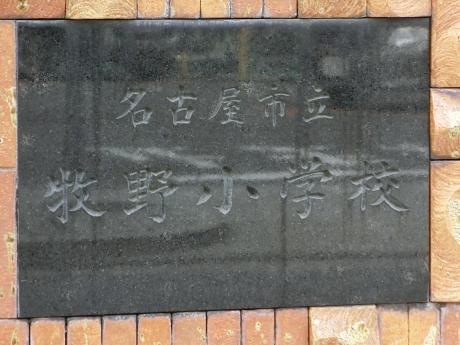 名古屋市立
牧野小学校